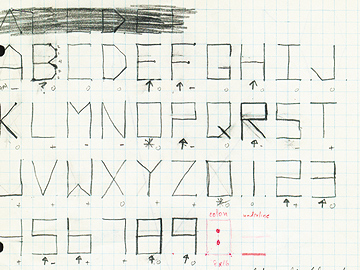 A B C D E F G H I J
K L M N O P Q R S T
U V W X Y Z 0 . 1 2 3
4 5 6 7 8 9 colon underline